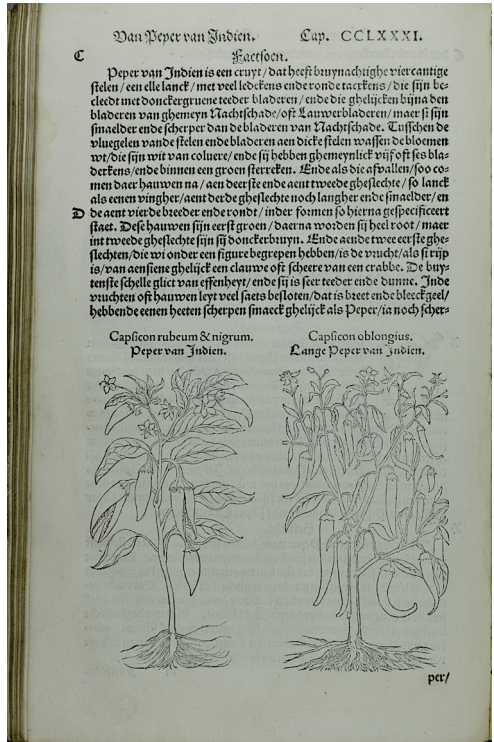 Van Peper van Indien. Cap. CCLXXXI.
C Faetsoen.
Peper van Indien is een cruyt/dat heeft bruynachtighe viercantige
stelen/een elle lanck/met veel ledekens ende ronde tacxkens/die sijn be-
cleedt met donckergruene teeder bladeren/ende die ghelijcken bijna den
bladeren van ghemeyn Nachtschade/oft Lauwerbladeren/maer si sijn
smaelder ende scherper dan de bladeren van Nachtschade. Tusschen de
vluegelen vande stelen ende bladeren aen dicke stelen wassen de bloemen
wt/die sijn wit van coluere/ende sij hebben ghemeynlick vijf oft ses bla-
derkens/ende binnen een groen sterreken. Ende als die afvallen/soo co-
men daer hauwen na/aen deerste ende aent tweede gheslechte/so lanck
als eenen vingher/aent derde gheslechte noch langher ende smaelder/en
D de aent vierde breeder ende rondt/inder formen so hierna gespecificeert
staet. Dese hauwen sijn eerst groen/daerna worden sij heel root/maer
int tweede gheslechte sijn sij donckerbruyn. Ende aende twee eerste ghe-
slechten/die wi onder een figure begrepen hebben/is de vrucht/als si rijp
is/van aensiene ghelijck een clauwe oft scheere van een crabbe. De buy-
tenste schelle glict van effenheyt/ende sij is seer teeder ende dunne. Inde
vruchten oft hauwen leyt veel saets besloten/dat is breet ende bleeckgeel/
hebbende eenen heeten scherpen smaeck ghelijck als Peper/ia noch scher-
Capsicon rubeum & nigrum.
Peper van Indien.
Capsicon oblongius.
Lange Peper van Indien.
per/